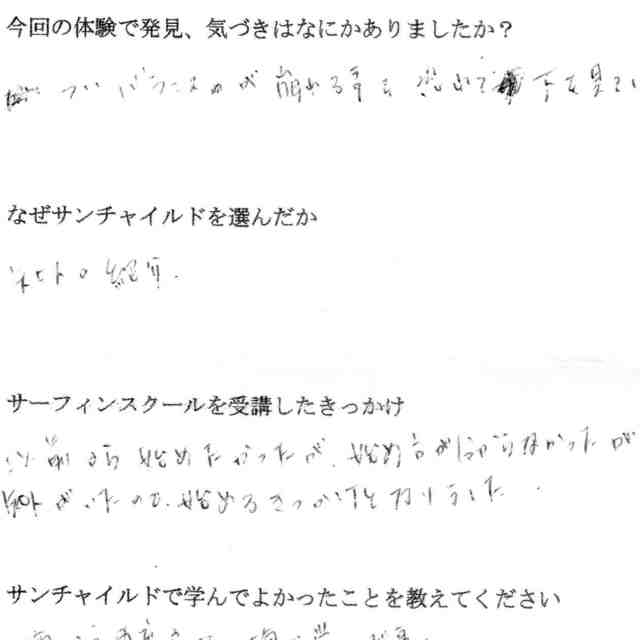 今回の体験で発見、気づきはなにかありましたか？
つい バランスが 崩れる事を 恐れて 下を見てい
なぜサンチャイルドを選んだか
ネットの紹介.
サーフィンスクールを受講したきっかけ
以前から始めたかったが、始め方が分からなかったが
がいたので、始めるきっかけになりました.
サンチャイルドで学んでよかったことを教えてください